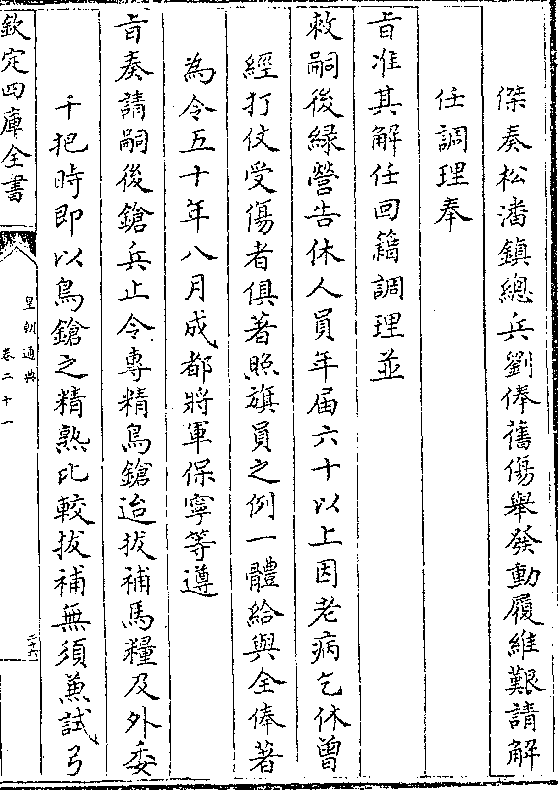 傑奏松潘鎮總兵劉俸舊傷舉發動履維艱請解
任調理奉
旨准其解任回籍調理並
敕嗣後綠營告休人員年届六十以上因老病乞休曾
經打仗受傷者俱著照旗員之例一體給與全俸著
為令五十年八月成都將軍保寧等遵
旨奏請嗣後鎗兵止令專精鳥鎗迨拔補馬糧及外委
千把時即以鳥鎗之精熟比較拔補無須兼試弓
欽定四庫全書
皇朝通典
卷二十一